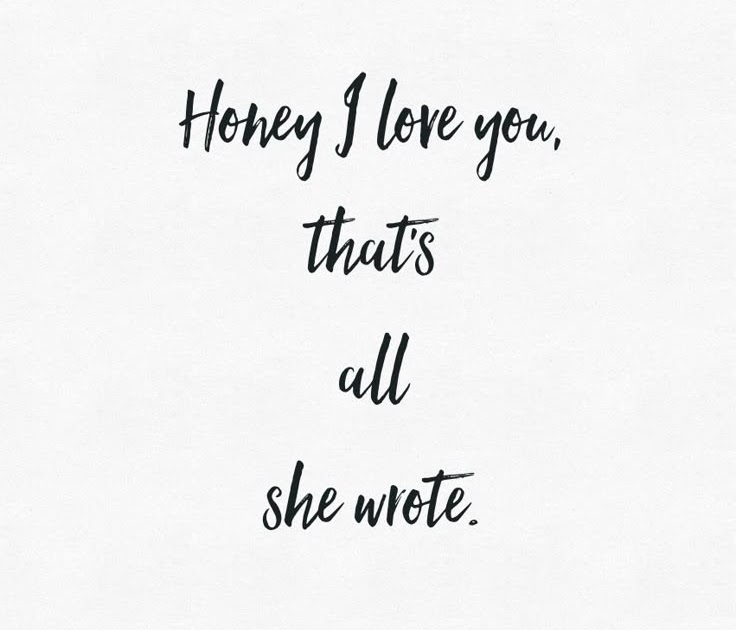 Honey I love you,
that's
all
she wrote.